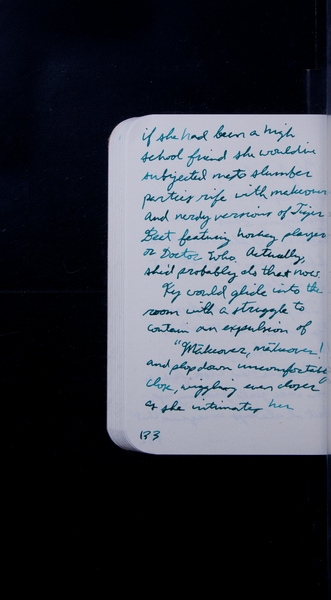 if she had been a high
school friend she would've
subjected me to slumber
parties rife with makeovers
and nerdy versions of Tiger
Beat featuring hockey players
or Doctor Who. Actually,
she'd probably do that now.
Key would glide into the
room with a struggle to
contain an expulsion of
"Makeover, makeover!
and plop down uncomfortably
close, wiggling even closer
as she intimates her
133